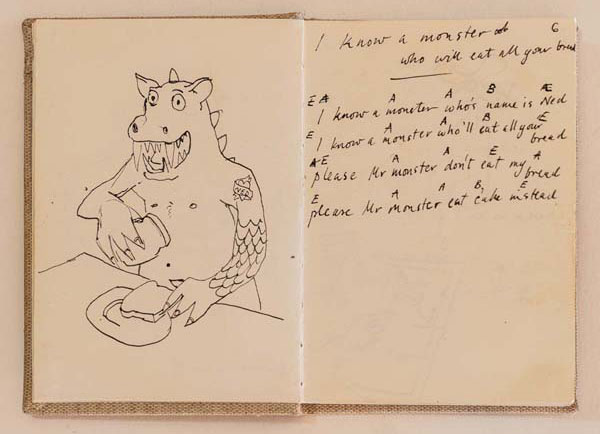 6
I know a monster
who will eat all your bread
E A A A B E
I know a monster who's name is Ned
E A A B E
I know a monster who'll eat all your bread
A E A A E A
please Mr monster don't eat my bread
E A A B E
please Mr monster eat cake instead